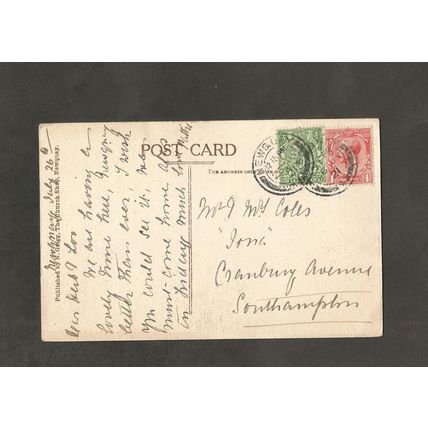 POST CARD
THE ADDRESS ONLY
NEWQUAY
Newquay July 26
Published by S. Gerry, The Church Shop, Newquay.
Dear Bert & Loo
We are having a
lovely time here, Newquay
better than ever, I wish
you could see it. We
must come home
on Friday much love Millie
Mr & Mrs Coles
"Iona"
Cranbury Avenue
Southampton